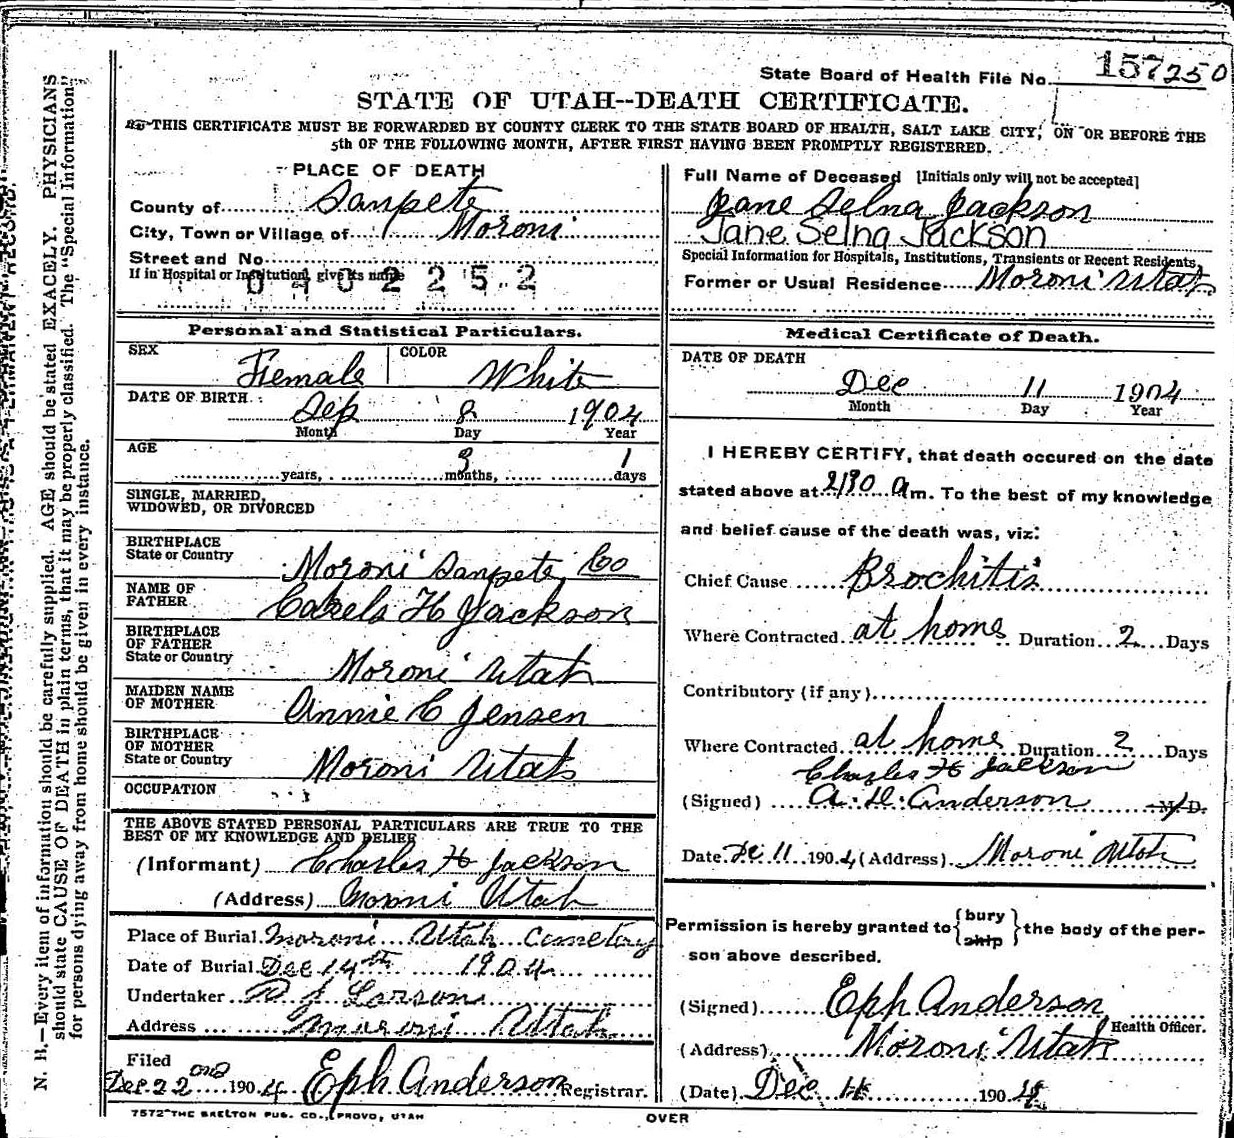 State Board of Health File No. 157250
STATE OF UTAH--DEATH CERTIFICATE.
THIS CERTIFICATE MUST BE FORWARDED BY COUNTY CLERK TO THE STATE BOARD OF HEALTH, SALT LAKE CITY, ON OR BEFORE THE
5th OF THE FOLLOWING MONTH, AFTER FIRST HAVING BEEN PROMPTLY REGISTERED.
PLACE OF DEATH
County of Sanpete
City, Town or Village of Moroni
Street and No
If in Hospital or Institution, give its name
0402252
Full Name of Deceased [Initials only will not be accepted]
Jane Selna Jackson
Jane Selna Jackson
Special Information for Hospitals, Institutions, Transients or Recent Residents,
Former or Usual Residence Moroni Utah
Personal and Statistical Particulars.
SEX Female COLOR White
DATE OF BIRTH
Sep 8 1904
Month Day Year
AGE
years, 3 months, 1 days
SINGLE, MARRIED,
WIDOWED, OR DIVORCED
BIRTHPLACE
State or Country Moroni Sanpete Co
NAME OF
FATHER Carels H Jackson
BIRTHPLACE
OF FATHER
State or Country Moroni Utah
MAIDEN NAME
OF MOTHER Annie C Jensen
BIRTHPLACE
OF MOTHER
State or Country Moroni Utah
OCCUPATION
THE ABOVE STATED PERSONAL PARTICULARS ARE TRUE TO THE
BEST OF MY KNOWLEDGE AND BELIEF
(Informant) Charles H Jackson
(Address) Moroni Utah
Place of Burial Moroni Utah Cemetery
Date of Burial Dec 14th 1904
Undertaker Larson
Address Moroni Utah
Filed
Dec 22ond 1904 Eph Anderson Registrar.
7572 THE SKELTON PUB. CO., PROVO, UTAH
Medical Certificate of Death.
DATE OF DEATH
Dec 11 1904
Month Day Year
I HEREBY CERTIFY, that death occured on the date
stated above at 2/30 a m. To the best of my knowledge
and belief cause of the death was, viz:
Chief Cause Brochitis
Where Contracted at home Duration 2 Days
Contributory (if any)
Where Contracted at home Duration 2 Days
Charles H Jackson
(Signed) Anderson M. D.
Date Dec 11 1904 (Address) Moroni Utah
Permission is hereby granted to {bury
ship} the body of the per-
son above described.
(Signed) Eph Anderson
Health Officer.
(Address) Moroni Utah
(Date) Dec 1904
OVER
N. B.—Every item of information should be carefully supplied. AGE should be stated EXACELY. PHYSICIANS
should state CAUSE OF DEATH in plain terms, that it may be properly classified. The "Special Information"
for persons dying away from home should be given in every instance.